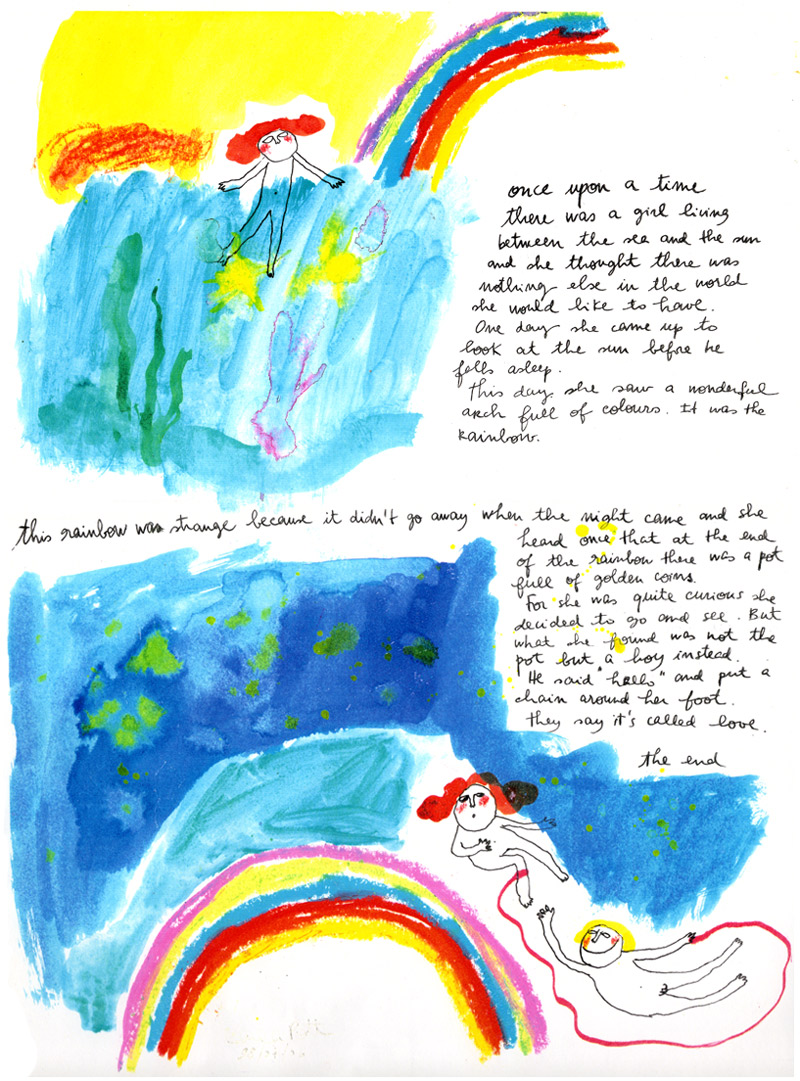 once upon a time
there was a girl living
between the sea and the sun
and she thought there was
nothing else in the world
she would like to have.
One day she came up to
look at the sun before he
falls asleep.
This day she saw a wonderful
arch full of colours. It was the
rainbow.
this rainbow was strange because it didn't go away when the night came and she
heard once that at the end
of the rainbow there was a pot
full of golden coins.
For she was quite curious she
decided to go and see. But
what she found was not the
pot but a boy instead.
He said "hello" and put a
chain around her foot.
They say it's called love.
the end